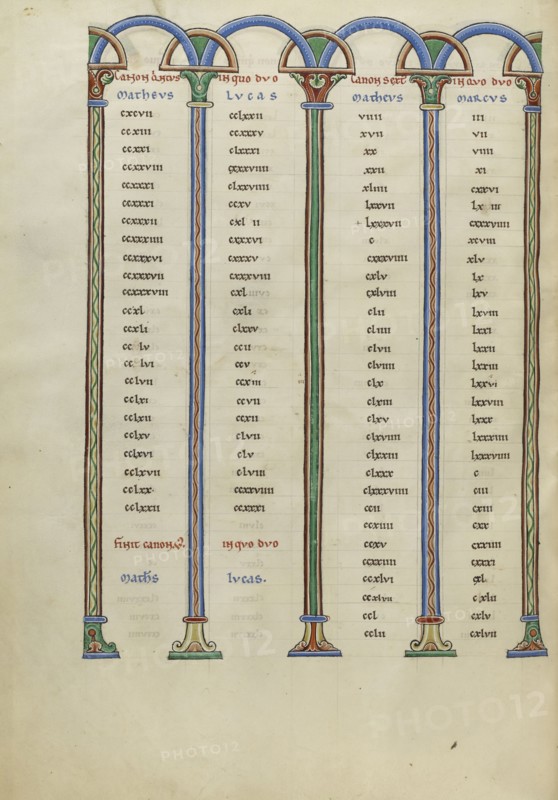 Canon quintus in quo duo Canon sext in quo duo
Matheus Lucas Matheus Marcus
cxcvii cclxxii viiii iii
ccxiii ccxxxv xvii vii
ccxxi clxxxi xx viiii
ccxxviii xxii xi
ccxxxi clxxviiii xliiii cxxvi
ccxxxi ccxv lxxvii
ccxxxii lxxxvii cxxxviiii
ccxxxiiii cxxxvi c xcviii
ccxxxvi cxxxv cxxxviiii xlv
ccxxxvii cxxxviii cxlv lx
ccxxxviii cxl cxlviii lxv
ccxl cxli clii lxviii
ccxli clxxv cliiii lxxi
cc lv ccii clvii lxxii
cc lvi ccv clviiii lxxiii
cclvii ccxiii clx lxxvi
cclxi ccvii clxiii lxxviii
cclxii ccxii clxv lxxx
cclxv clvii clxviiii lxxxiiii
cclxvi clv clxxiii lxxxviiii
cclxvii clviii clxxx c
cclxx ccxxviiii clxxxviiii ciii
cclxxii ccxxxi ccii cxiii
ccxiiii cxx
finit canon v. in quo duo ccxv cxxiiii
ccxxiiii cxxxi
Maths lucas. ccxlvi cxl
ccxlvii cxlii
ccl cxlv
cclii cxlvii
PHOTO12